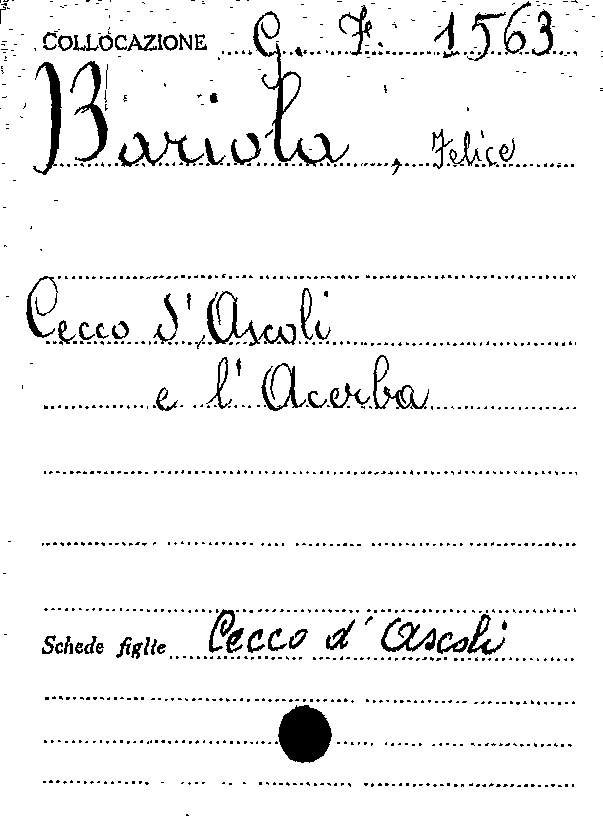 COLLOCAZIONE G. F. 1563
Bariola, Felice
Cecco d'Ascoli
e l'Acerba
Schede figlie Cecco d'Ascoli